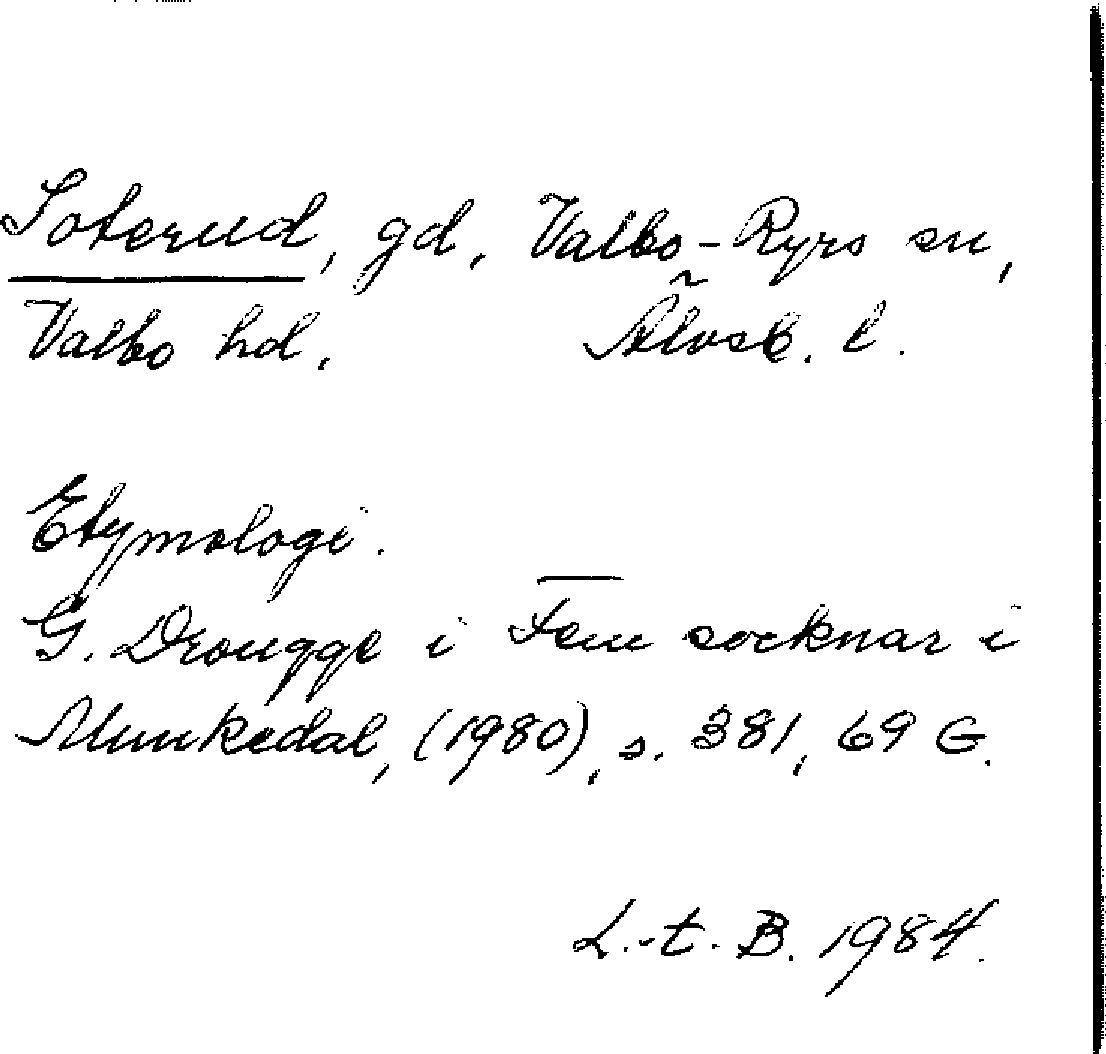 Soterud, gd, Valbo-Ryrs sn,
Valbo hd. Älvsb. l.
Etymologi.
G. Drougge i Fem socknar i
Munkedal, (1980), s. 381, 69 G.
L.-t. B. 1984.